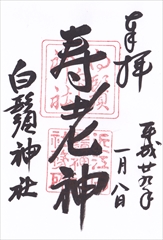 奉拝
平成廿九年
一月八日
寿老神
白鬚神社